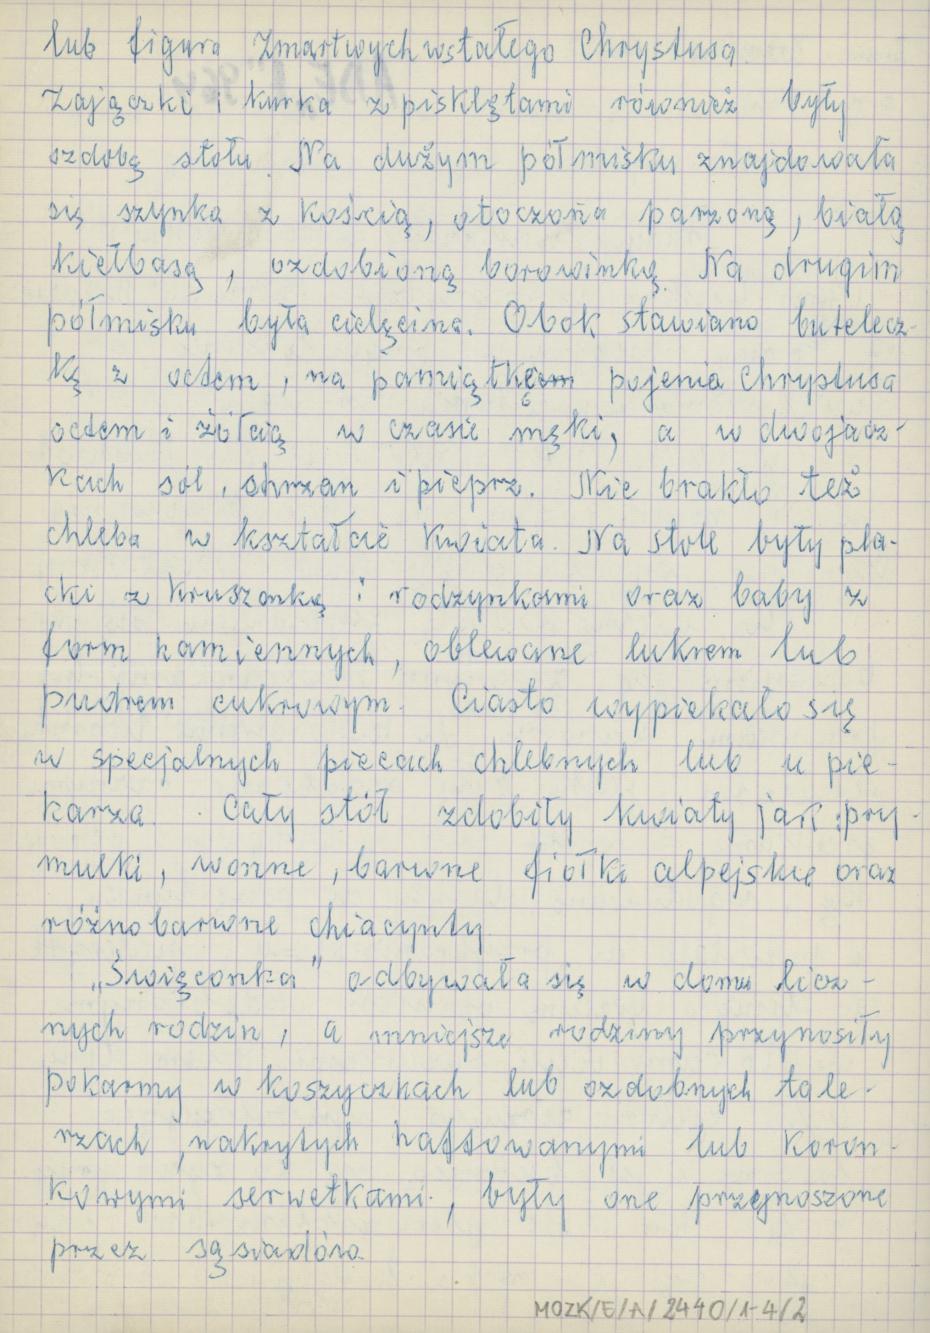 lub figura Zmartwychwstałego Chrystusa
Zajączki i kurka z pisklętami również były
ozdobą stołu. Na dużym półmisku znajdowała
się szynka z kością, otoczona parzoną, białą
kiełbasą, ozdobioną borowinką. Na drugim
półmisku była cielęcina. Obok stawiano butelecz-
kę z octem, na pamiątkę pojenia Chrystusa
octem i żółcią w czasie męki, a w dwojacz-
kach sól, chrzan i pieprz. Nie brakło też
chleba w kształcie kwiata. Na stole były pla-
cki z kruszonką i rodzynkami oraz baby z
form kamiennych, oblewane lukrem lub
pudrem cukrowym. Ciasto wypiekało się
w specjalnych piecach chlebnych lub u pie-
karza. Cały stół zdobiły kwiaty jak: pry-
mulki, wonne, barwne fiołki alpejskie oraz
różnobarwne chiacynty.
„Święconka" odbywała się w domu licz-
nych rodzin, a mniejsze rodziny przynosiły
pokarmy w koszyczkach lub ozdobnych tale-
rzach, nakrytych haftowanymi lub koron-
kowymi serwetkami, były one przynoszone
przez sąsiadów.
MOZK/E/A/2440/1-4/2